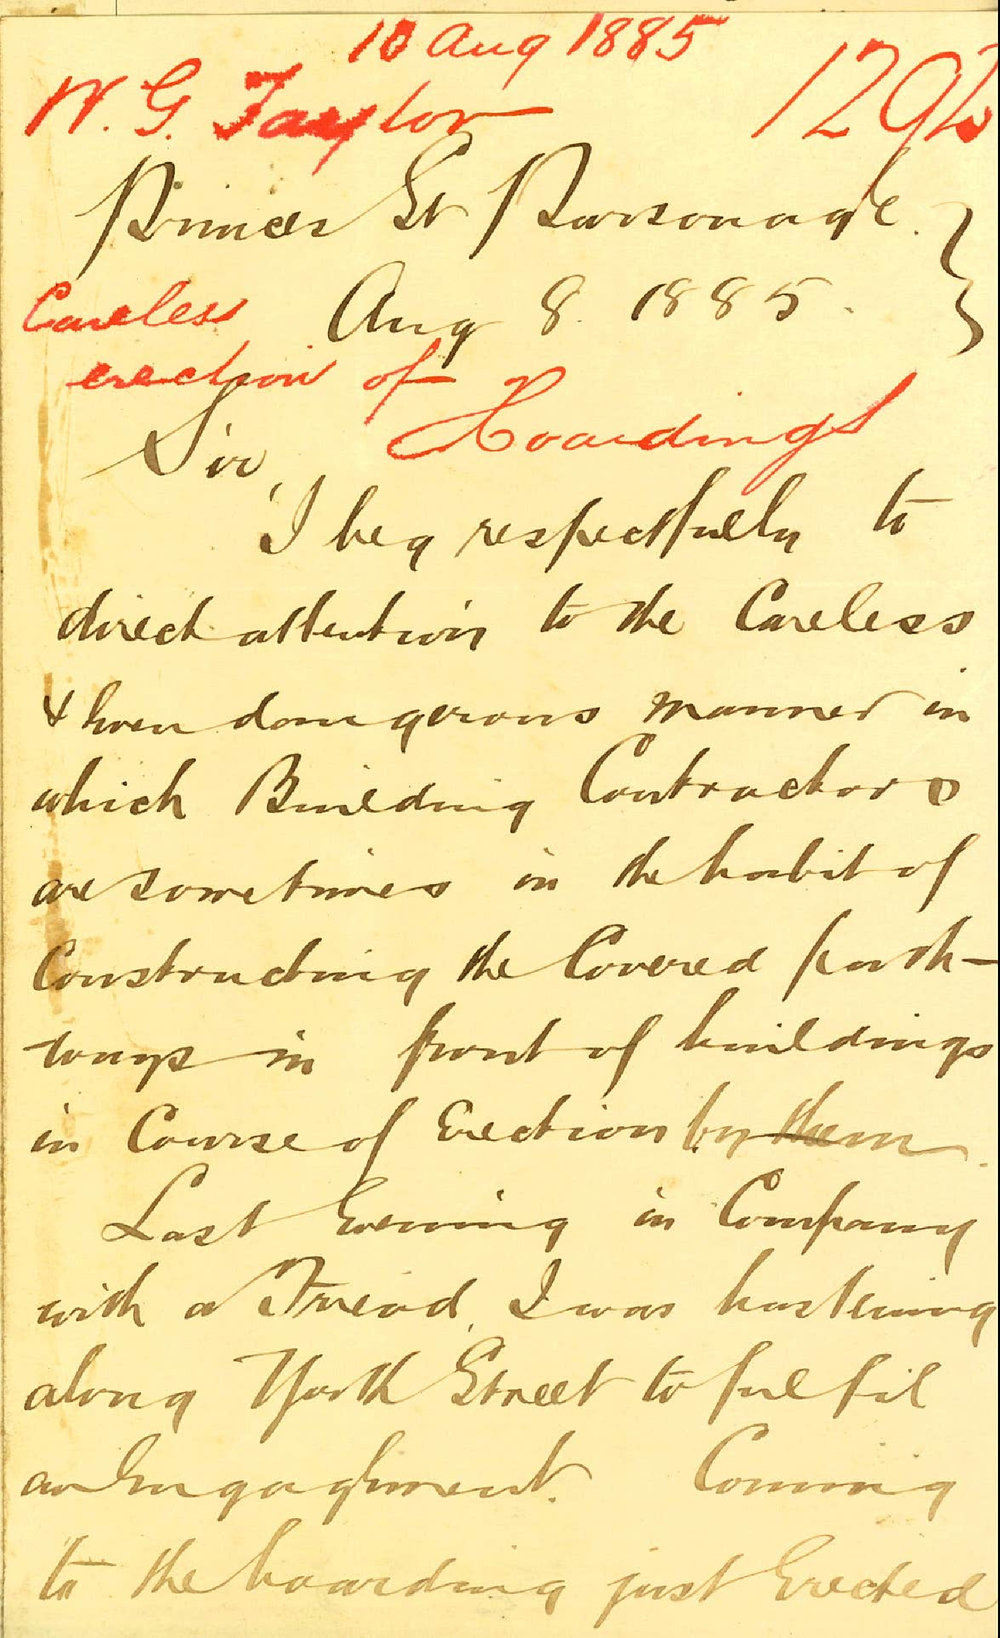 10 Aug 1885
W. G. Taylor
Princes St Parsonage.
Careless Aug 8. 1885.
erection of
Hoardings
Sir,
I beg respectfully to
direct attention to the Careless
& even dangerous manner in
which Building Contractors
are sometimes in the habit of
Constructing the Covered path-
ways in front of buildings
in Course of Erection by them.
Last Evening in Company
with a Friend, I was hastening
along York Street to fulfil
an Engagement. Coming
to the hoarding just Erected